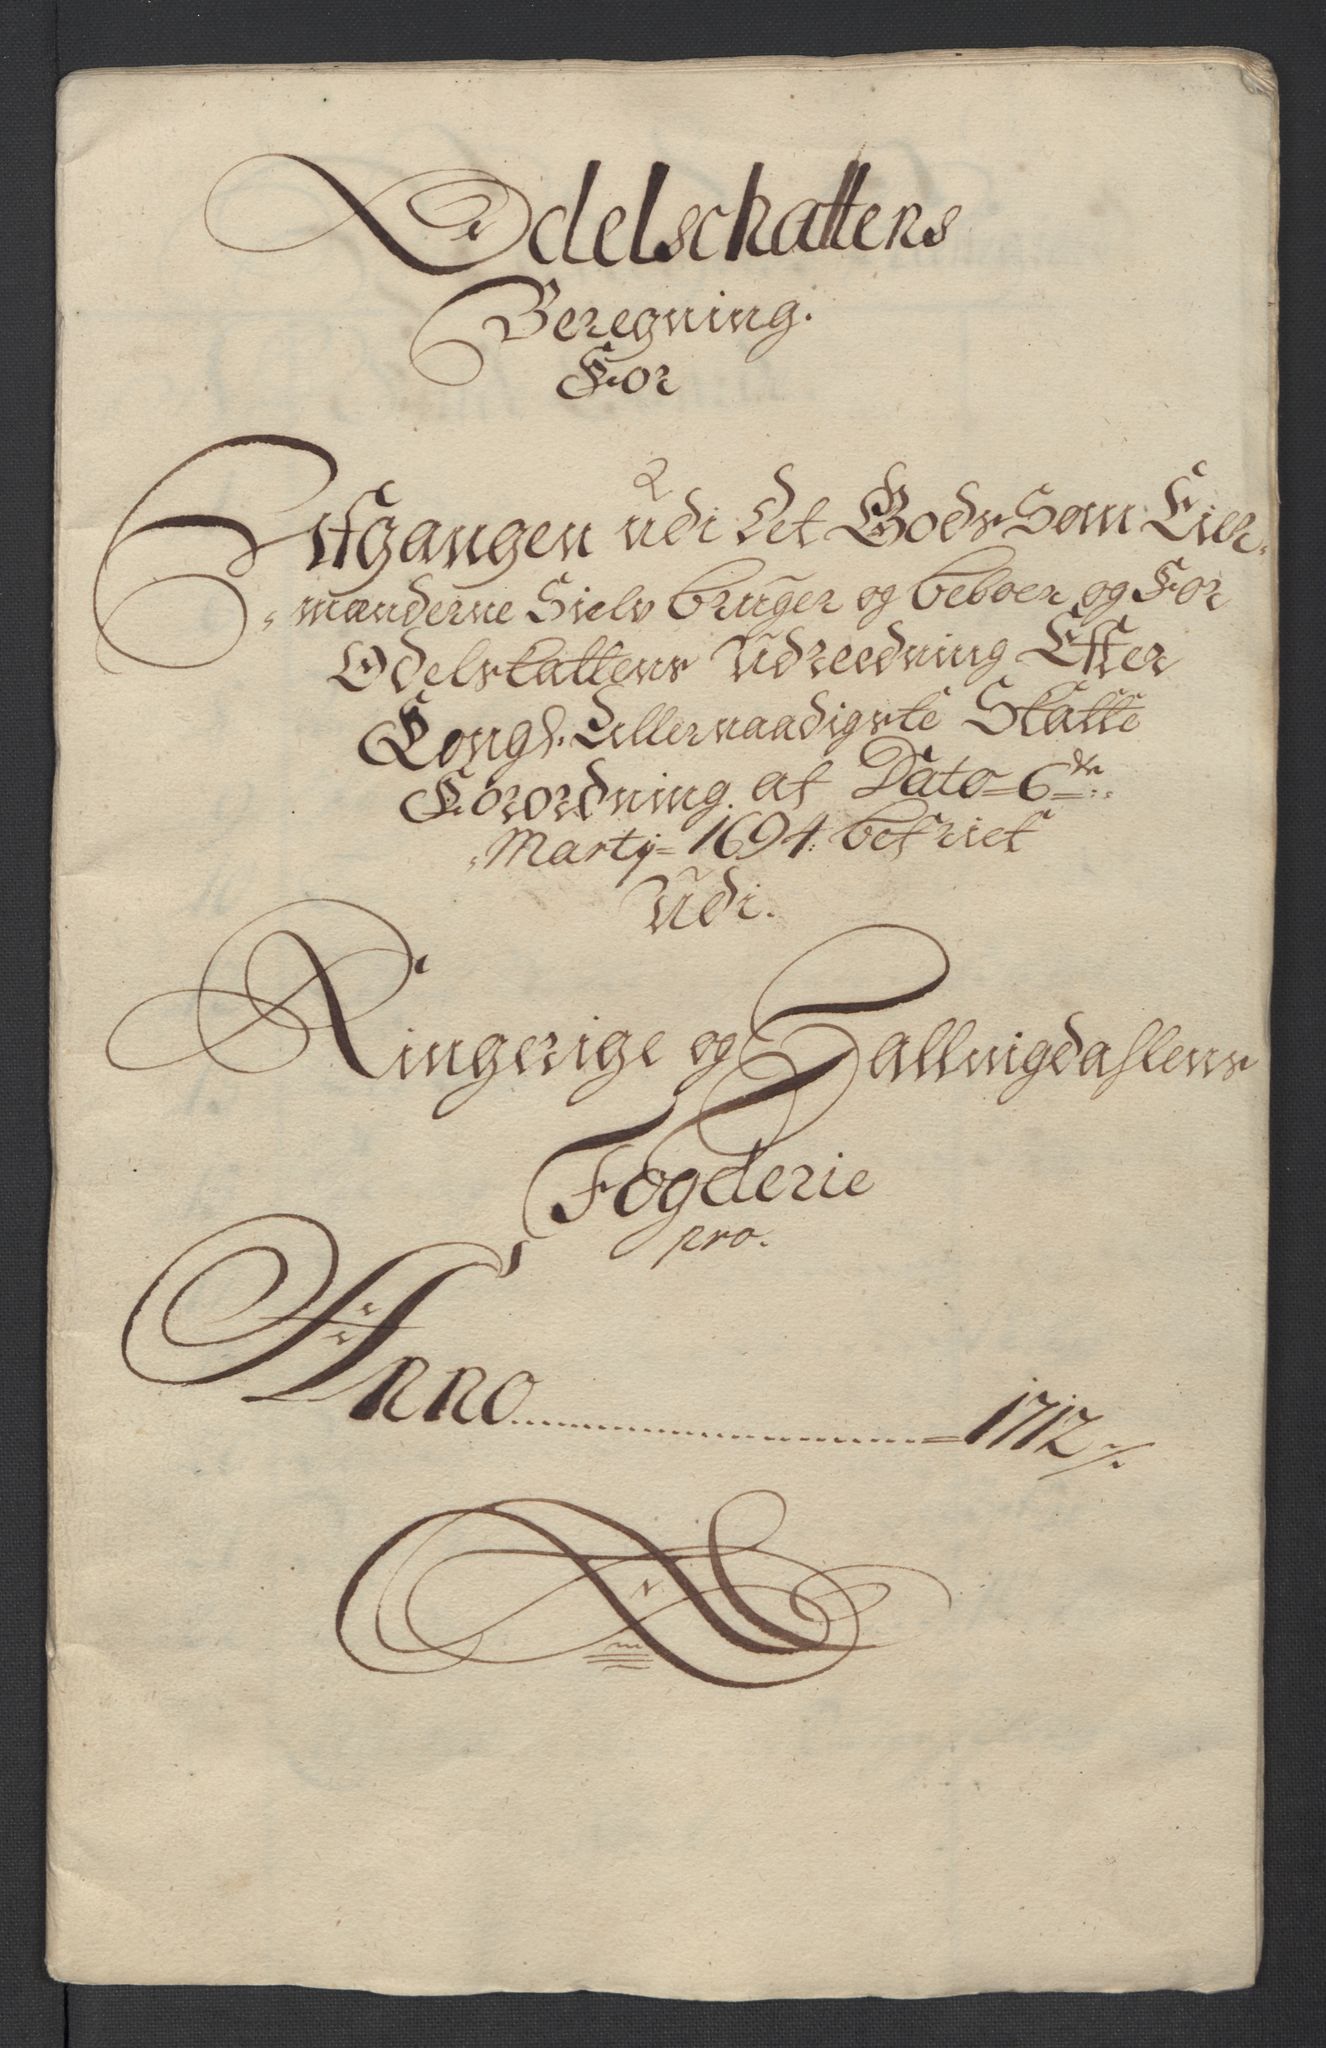 Odelschattens
Beregning.
For
Afgangen udi det Gods Som Eier-
mænderne Sielv brüger og beboer og For
Odelskattens Udreedning Effter
Kongl. Allernaadigste Skatte
Forordning af Dato 6te
Martÿ 1694. befriet
Udi.
Ringerige og Hallingdahlens
Fogderie
pro.
Anno 1712